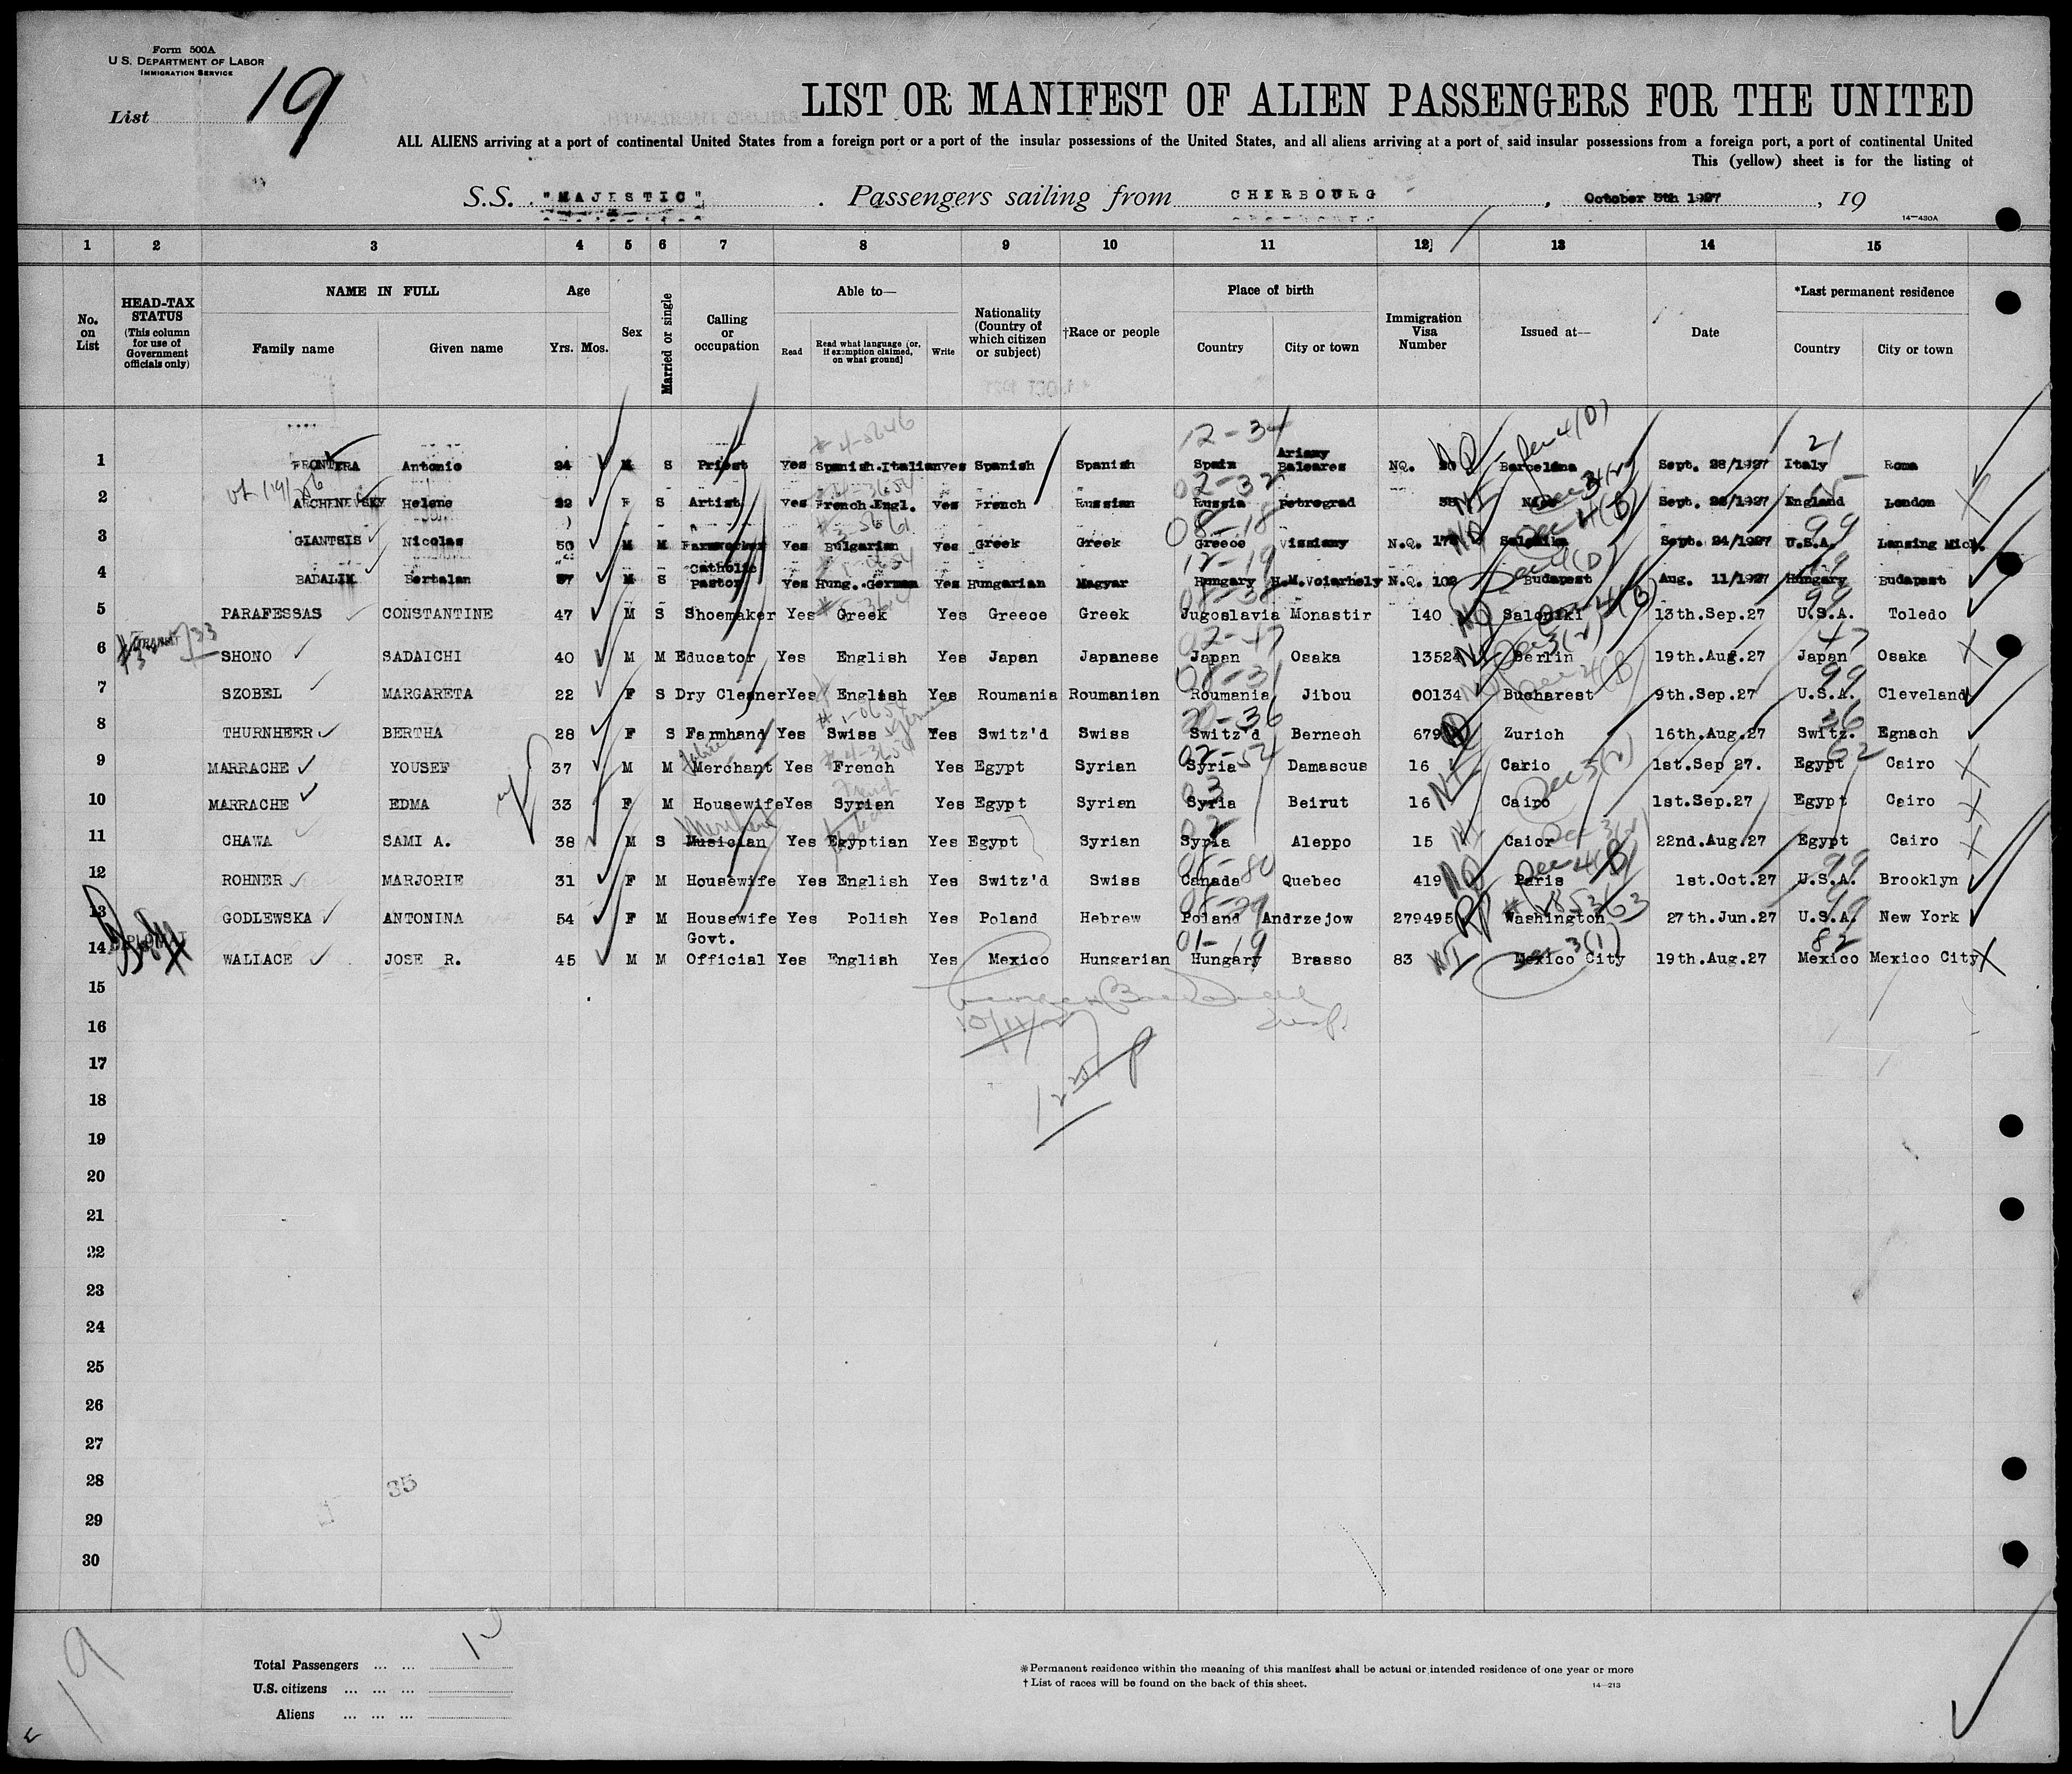 Form 500A
U.S. DEPARTMENT OF LABOR
IMMIGRATION SERVICE
List 19
LIST OR MANIFEST OF ALIEN PASSENGERS FOR THE UNITED
ALL ALIENS arriving at a port of continental United States from a foreign port or a port of the insular possessions of the United States, and all aliens arriving at a port of said insular possessions from a foreign port, a port of continental United
This (yellow) sheet is for the listing of
S.S. "MAJESTIC" . Passengers sailing from CHERBOURG , October 5th 1927 , 19
14—430A
1 2 3 4 5 6 7 8 9 10 11 12 13 14 15
No. on List
HEAD-TAX STATUS (This column for use of Government officials only)
NAME IN FULL
Family name Given name
Age
Yrs. Mos.
Sex
Married or single
Calling or occupation
Able to—
Read Read what language (or, if exemption claimed, on what ground) Write
Nationality (Country of which citizen or subject)
†Race or people
Place of birth
Country City or town
Immigration Visa Number
Issued at—
Date
*Last permanent residence
Country City or town
1 FRONTERA Antonio 24 M S Priest Yes Spanish.Italian yes Spanish Spanish Spain Ariany Baleares NQ. Barcelona Sept. 28/1927 Italy Rome
2 Helene 22 F S Artist Yes French.Engl. Yes French Russian Russia Petrograd Nice Sept. 26/1927 England London
3 GIANTSIS Nicolas 50 M M Farmworker Yes Bulgarian Yes Greek Greek Greece Vissiany N.Q. Salonika Sept. 24/1927 U.S.A. Lansing Mich.
4 Bertalan 37 M S Catholic Pastor Yes Hung..German Yes Hungarian Magyar Hungary N.Q. 102 Budapest Aug. 11/1927 Hungary Budapest
5 PARAFESSAS CONSTANTINE 47 M S Shoemaker Yes Greek Yes Greece Greek Jugoslavia Monastir 140 NQ Saloniki 13th.Sep.27 U.S.A. Toledo
6 TRANSIT SHONO SADAICHI 40 M M Educator Yes English Yes Japan Japanese Japan Osaka 13524 Berlin 19th.Aug.27 Japan Osaka
7 SZOBEL MARGARETA 22 F S Dry Cleaner Yes English Yes Roumania Roumanian Roumania Jibou 00134 Bucharest 9th.Sep.27 U.S.A. Cleveland
8 THURNHEER BERTHA 28 F S Farmhand Yes Swiss Yes Switz'd Swiss Switz'd Bernech 679 Zurich 16th.Aug.27 Switz. Egnach
9 MARRACHE YOUSEF 37 M M Merchant Yes French Yes Egypt Syrian Syria Damascus 16 Cario 1st.Sep 27. Egypt Cairo
10 MARRACHE EDMA 33 F M Housewife Yes Syrian Yes Egypt Syrian Syria Beirut 16 NI Cairo 1st.Sep.27 Egypt Cairo
11 CHAWA SAMI A. 38 M S Merchant Musician Yes Egyptian Yes Egypt Syrian Syria Aleppo 15 Caior 22nd.Aug.27 Egypt Cairo
12 ROHNER MARJORIE 31 F M Housewife Yes English Yes Switz'd Swiss Canada Quebec 419 NQ Paris 1st.Oct.27 U.S.A. Brooklyn
13 GODLEWSKA ANTONINA 54 F M Housewife Yes Polish Yes Poland Hebrew Poland Andrzejow 279495 RP Washington 27th.Jun.27 U.S.A. New York
14 DIPLOMAT WALLACE JOSE R. 45 M M Govt. Official Yes English Yes Mexico Hungarian Hungary Brasso 83 NI Mexico City 19th.Aug.27 Mexico Mexico City
15
16
17
18
19
20
21
22
23
24
25
26
27
28
29
30
35
19
Total Passengers ... ...
U.S. citizens ... ... ...
Aliens ... ... ...
*Permanent residence within the meaning of this manifest shall be actual or intended residence of one year or more
† List of races will be found on the back of this sheet.
14—213